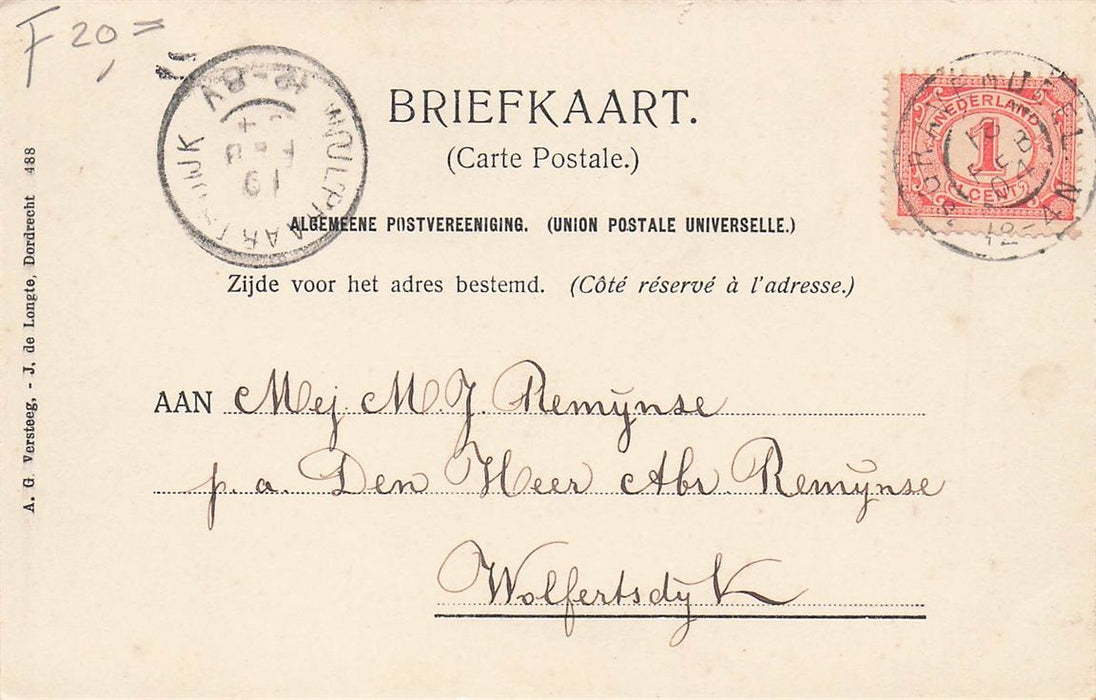 F 20,=
BRIEFKAART.
(Carte Postale.)
ALGEMEENE POSTVEREENIGING. (UNION POSTALE UNIVERSELLE.)
Zijde voor het adres bestemd. (Côté réservé à l'adresse.)
AAN Mej. M. J. Remijnse
p. a. Den Heer Abr. Remijnse
Wolfertsdijk
A. G. Versteeg, - J. de Longte, Dordrecht 488
NEDERLAND
1
CENT
FEB
04
12-4N